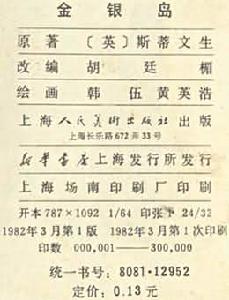 金银岛
原著 〔英〕斯蒂文生
改编 胡廷楣
绘画 韩伍黄英浩
上海人民美术出版社出版
上海长乐路672弄33号
新华书店上海发行所发行
上海场南印刷厂印刷
开本787×1092 1/64 印张1 24/32
1982年3月第1版 1982年3月第1次印刷
印数 000,001——300,000
统一书号：8081·12952
定价：0.13元